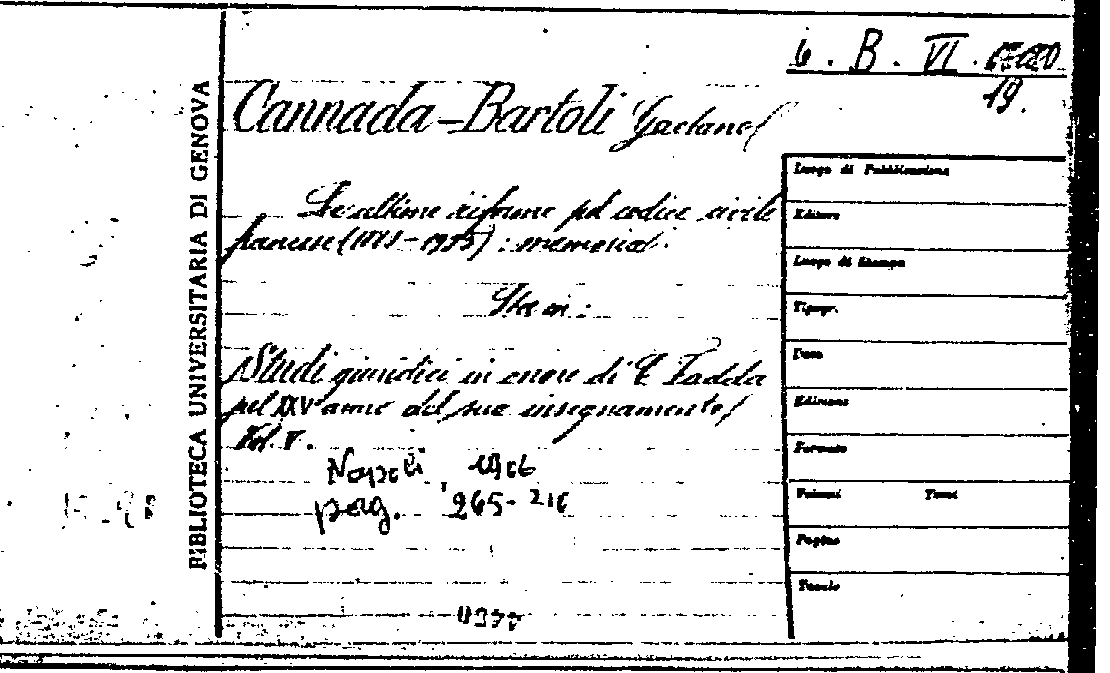 6. B. VI.
19.
Cannada-Bartoli Gaetano
Le ultime riforme pel codice civile
francese : memoria.
Sta in:
Studi giuridici in onore di C. Fadda
pel XXV anno del suo insegnamento
Vol. V.
Napoli, 1906
pag. 265-
BIBLIOTECA UNIVERSITARIA DI GENOVA
Luogo di Pubblicazione
Editore
Luogo di Stampa
Tipogr.
Data
Edizione
Formato
Volumi Tomi
Pagine
Tavole